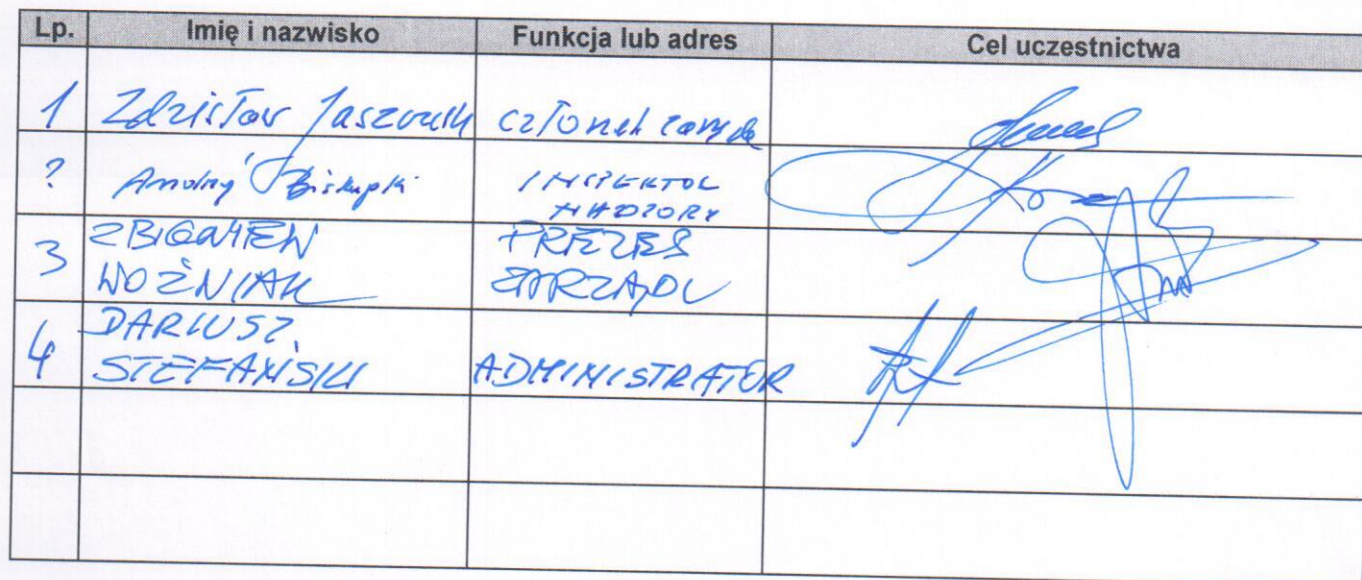 Lp. Imię i nazwisko Funkcja lub adres Cel uczestnictwa
1 Zdzisław Jaszczuk członek zarządu
? Andrzej Biskupski INSPEKTOR
NADZORU
3 ZBIGNIEW PREZES
WOŹNIAK ZARZĄDU
DARIUSZ
4 STEFAŃSKI ADMINISTRATOR